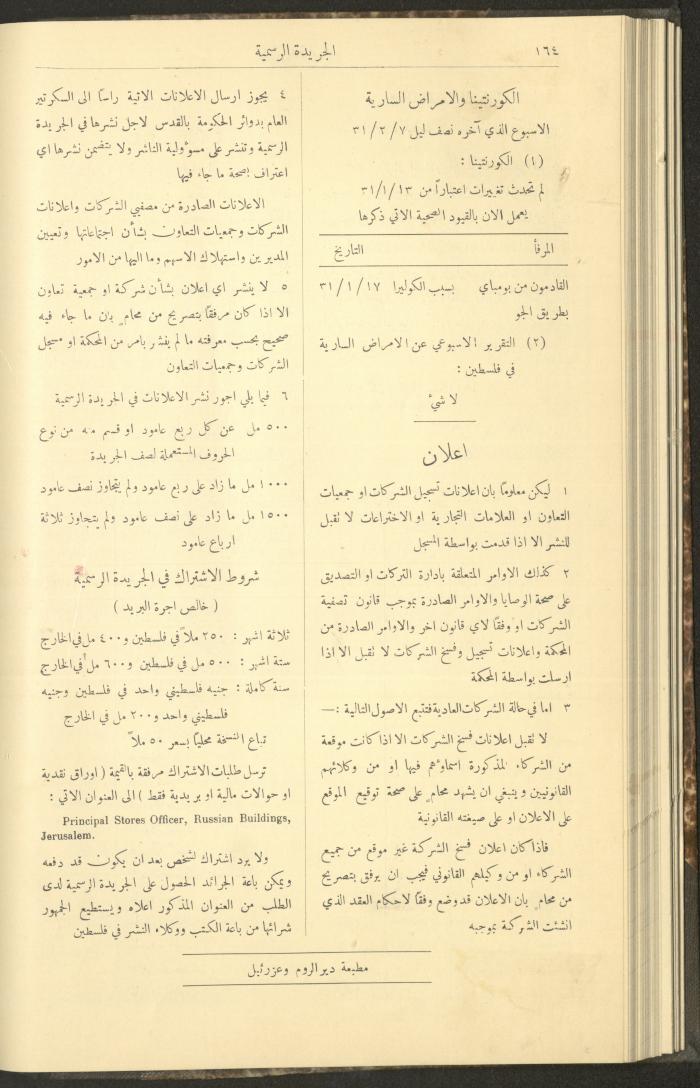 ١٦٤
الجريدة الرسمية
الكورنتينا والامراض السارية
الاسبوع الذي آخره نصف ليل ٧ / ٢ / ٣١
(١) الكورنتينا :
لم تحدث تغييرات اعتباراً من ١٣ /١/ ٣١
يعمل الان بالقيود الصحية الاتي ذكرها
المرفأ التاريخ
القادمون من بومباي بسبب الكوليرا ١٧ / ١ / ٣١
بطريق الجو
(٢) التقرير الاسبوعي عن الامراض السارية
في فلسطين :
لا شيء
اعلان
١ ليكن معلوماً بان اعلانات تسجيل الشركات او جمعيات
التعاون او العلامات التجارية او الاختراعات لا تقبل
للنشر الا اذا قدمت بواسطة المسجل
٢ كذلك الاوامر المتعلقة بادارة التركات او التصديق
على صحة الوصايا والاوامر الصادرة بموجب قانون تصفية
الشركات او وفقاً لاي قانون اخر والاوامر الصادرة من
المحكمة واعلانات تسجيل وفسخ الشركات لا تقبل الا اذا
ارسلت بواسطة المحكمة
٣ اما في حالة الشركات العادية فتتبع الاصول التالية :—
لا تقبل اعلانات فسخ الشركات الا اذا كانت موقعة
من الشركاء المذكورة اسماؤهم فيها او من وكلائهم
القانونيين وينبغي ان يشهد محام على صحة توقيع الموقع
على الاعلان او على صيغته القانونية
فاذا كان اعلان فسخ الشركة غير موقع من جميع
الشركاء او من وكيلهم القانوني فيجب ان يرفق بتصريح
من محام بان الاعلان قد وضع وفقاً لاحكام العقد الذي
انشئت الشركة بموجبه
٤ يجوز ارسال الاعلانات الاتية راساً الى السكرتير
العام بدوائر الحكومة بالقدس لاجل نشرها في الجريدة
الرسمية وتنشر على مسؤولية الناشر ولا يتضمن نشرها اي
اعتراف بصحة ما جاء فيها
الاعلانات الصادرة من مصفيي الشركات واعلانات
الشركات وجمعيات التعاون بشأن اجتماعاتها وتعيين
المديرين واستهلاك الاسهم وما اليها من الامور
٥ لا ينشر اي اعلان بشأن شركة او جمعية تعاون
الا اذا كان مرفقاً بتصريح من محام بان ما جاء فيه
صحيح بحسب معرفته ما لم ينشر بامر من المحكمة او مسجل
الشركات وجمعيات التعاون
٦ فيما يلي اجور نشر الاعلانات في الجريدة الرسمية
٥٠٠ مل عن كل ربع عامود او قسم منه من نوع
الحروف المستعملة لصف الجريدة
١٠٠٠ مل ما زاد على ربع عامود ولم يتجاوز نصف عامود
١٥٠٠ مل ما زاد على نصف عامود ولم يتجاوز ثلاثة
ارباع عامود
شروط الاشتراك في الجريدة الرسمية
( خالص اجرة البريد )
ثلاثة اشهر : ٢٥٠ ملاً في فلسطين و٤٠٠ مل في الخارج
ستة اشهر : ٥٠٠ مل في فلسطين و٦٠٠ مل في الخارج
سنة كاملة : جنيه فلسطيني واحد في فلسطين وجنيه
فلسطيني واحد و٢٠٠ مل في الخارج
تباع النسخة محلياً بسعر ٥٠ ملاً
ترسل طلبات الاشتراك مرفقة بالقيمة ( اوراق نقدية
او حوالات مالية او بريدية فقط ) الى العنوان الاتي :
Principal Stores Officer, Russian Buildings,
Jerusalem.
ولا يرد اشتراك لشخص بعد ان يكون قد دفعه
ويمكن باعة الجرائد الحصول على الجريدة الرسمية لدى
الطلب من العنوان المذكور اعلاه ويستطيع الجمهور
شرائها من باعة الكتب ووكلاء النشر في فلسطين
مطبعة دير الروم وعزرئيل